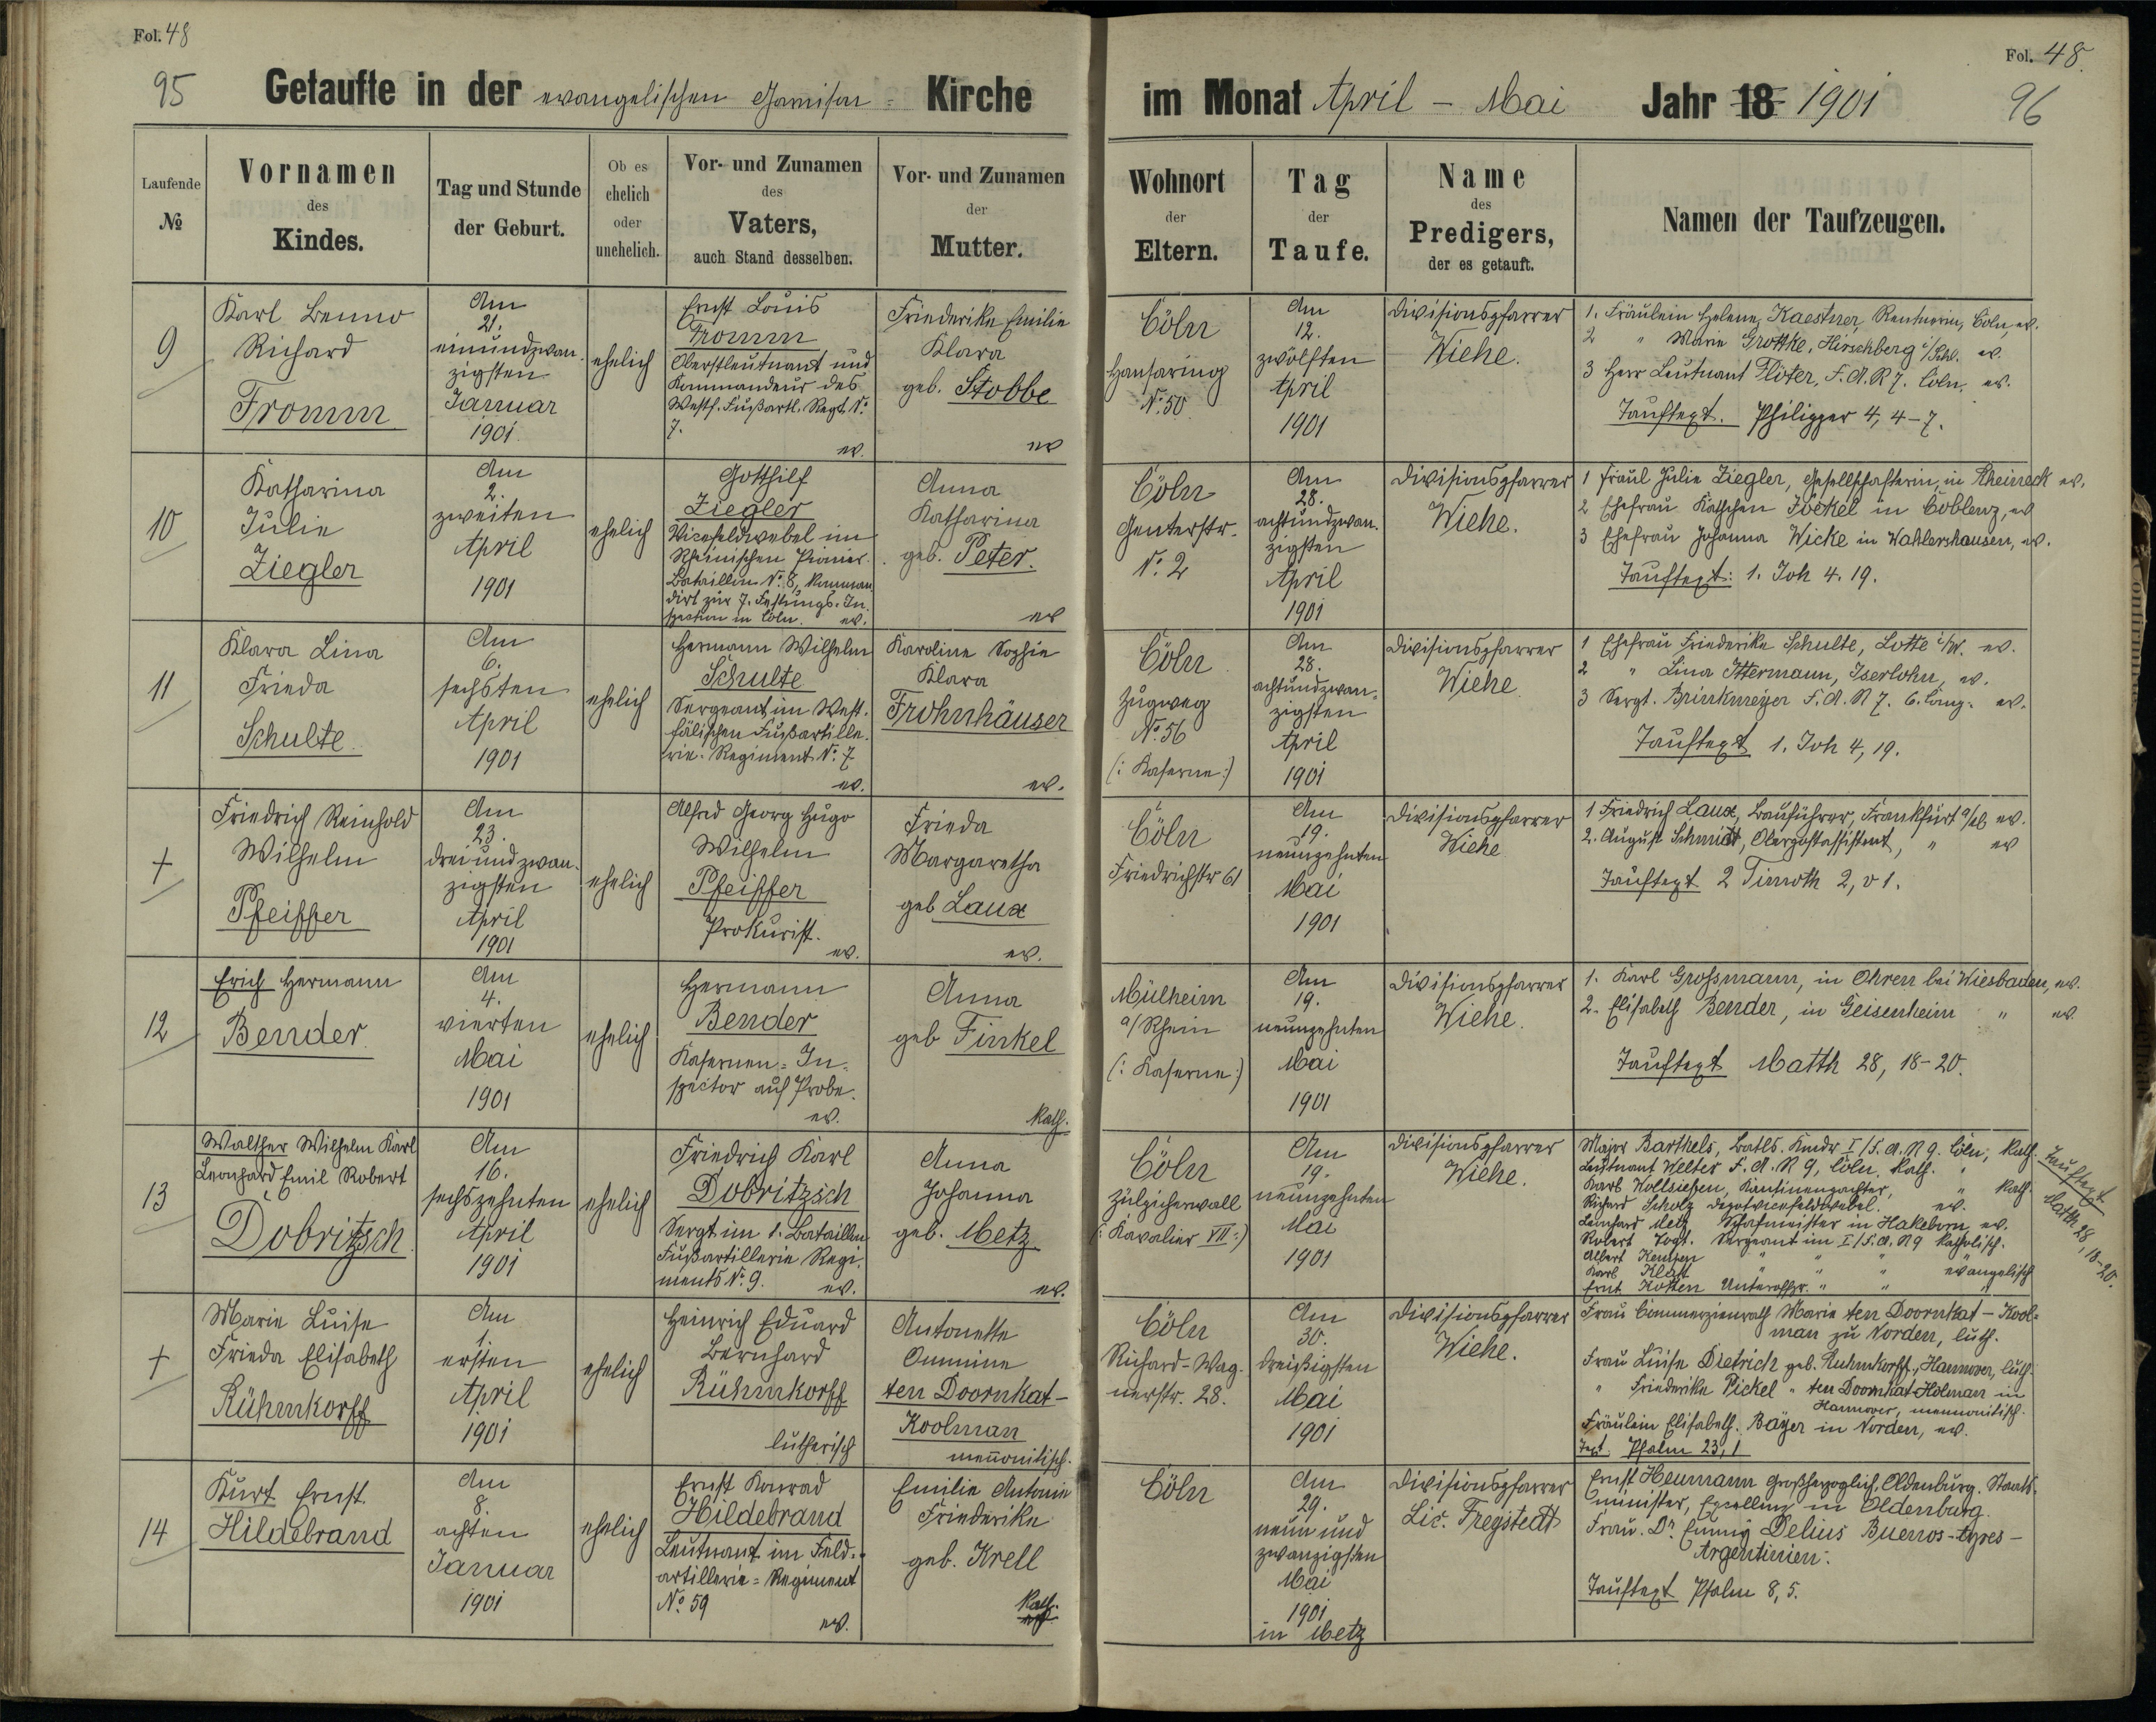 Fol. 48
95
Getaufte in der evangelischen Garnison- Kirche
Laufende No
Vornamen des Kindes.
Tag und Stunde der Geburt.
Ob es ehelich oder unehelich.
Vor- und Zunamen des Vaters, auch Stand desselben.
Vor- und Zunamen der Mutter.
9
Karl Benno
Richard
Fromm
Am
21.
einundzwan-
zigsten
Januar
1901.
ehelich
Ernst Louis
Fromm
Oberstleutnant und
Kommandeur des
Westf. Fußartl. Regt. No.
7.
ev.
Friederike Emilie
Klara
geb. Stobbe
ev
10
Katharina
Julie
Ziegler
Am
2.
zweiten
April
1901
ehelich
Gotthilf
Ziegler
Vicefeldwebel im
Rheinischen Pionier-
Bataillon No. 8, komman-
dirt zur 7. Festungs-In-
spection in Cöln. ev.
Anna
Katharina
geb. Peter.
ev
11
Klara Lina
Frieda
Schulte
Am
6.
sechsten
April
1901
ehelich
Hermann Wilhelm
Schulte
Sergeant im West-
fälischen Fußartille-
rie-Regiment No. 7
ev.
Karoline Sophie
Klara
Frohnhäuser
ev.
+
Friedrich Reinhold
Wilhelm
Pfeiffer
Am
23.
dreiundzwan-
zigsten
April
1901
ehelich
Alfred Georg Hugo
Wilhelm
Pfeiffer
Prokurist.
ev.
Frieda
Margaretha
geb Laux
ev.
12
Erich Hermann
Bender
Am
4.
vierten
Mai
1901
ehelich
Hermann
Bender
Kasernen-In-
spector auf Probe.
ev.
Anna
geb Finkel
kath.
13
Walther Wilhelm Karl
Leonhard Emil Robert
Dobritzsch
Am
16.
sechszehnten
April
1901
ehelich
Friedrich Karl
Dobritzsch
Sergt im 1. Bataillon
Fußartillerie Regi-
ments No. 9. ev.
Anna
Johanna
geb. Metz
ev.
+
Marie Luise
Frieda Elisabeth
Rühmkorff
Am
1.
ersten
April
1901
ehelich
Heinrich Eduard
Bernhard
Rühmkorff
lutherisch
Antonette
Onnine
ten Doornkat-
Koolman
mennonitisch.
14
Kurt Ernst
Hildebrand
Am
8.
achten
Januar
1901
ehelich
Ernst Konrad
Hildebrand
Leutnant im Feld-
artillerie-Regiment
No. 59
ev.
Emilie Antonie
Friederike
geb. Krell
kath.
Fol. 48.
im Monat April - Mai Jahr 18 1901
96
Wohnort der Eltern.
Tag der Taufe.
Name des Predigers, der es getauft.
Namen der Taufzeugen.
Cöln
Hansaring
No. 50
Am
12.
zwölften
April
1901
Divisionspfarrer
Wiehe.
1. Fräulein Helene Kaestner, Rentnerin, Cöln, ev.
2 " Marie Grottke, Hirschberg i/Schl. ev.
3 Herr Leutnant Flöter, F.A.R 7. Cöln. ev.
Tauftext. Philipper 4, 4-7.
Cöln
Genterstr.
No. 2
Am
28.
achtundzwan-
zigsten
April
1901
Divisionspfarrer
Wiehe.
1 Fräul Julie Ziegler, Gesellschafterin, in Rheineck ev.
2 Ehefrau Käthchen Jöckel in Coblenz, ev
3 Ehefrau Johanna Wicke in Wahlershausen, ev.
Tauftext: 1. Joh 4. 19.
Cöln
Zugweg
No. 56
(: Kaserne :)
Am
28.
achtundzwan-
zigsten
April
1901
Divisionspfarrer
Wiehe
1 Ehefrau Friederike Schulte, Lotte i/W. ev.
2 " Lina Ittermann, Iserlohn, ev.
3 Sergt. Brinkmeyer F.A.R 7. 6. Comp. ev.
Tauftext 1. Joh 4, 19.
Cöln
Friedrichstr 61
Am
19.
neunzehnten
Mai
1901
Divisionspfarrer
Wiehe
1 Friedrich Laux, Bauführer, Frankfurt a/M ev.
2. August Schmidt, Oberpostassistent, " ev
Tauftext 2 Timoth 2, v 1.
Mülheim
a/Rhein
(: Kaserne :)
Am
19.
neunzehnten
Mai
1901
Divisionspfarrer
Wiehe.
1. Karl Grossmann, in Ohren bei Wiesbaden, ev.
2. Elisabeth Bender, in Geisenheim " ev
Tauftext Matth 28, 18-20.
Cöln
Zülpicherwall
(: Kavalier VII :)
Am
19.
neunzehnten
Mai
1901
Divisionspfarrer
Wiehe.
Major Barthels, Batls. Kmdr I/F.A.R 9. Cöln, kath.
Leutnant Welter F.A.R 9, Cöln, kath.
Karl Vollsiefen, Kantinenpächter, " kath.
Richard Scholz Depotvicefeldwebel. ev.
Leonhard Metz, Schafmeister in Hakeborn, ev.
Robert Vogt. Sergeant im I/F.A.R 9 katholisch.
Albert Kempen " " " "
Karl Klatt " " " evangelisch
Ernst Kotten Unteroffzr. " " "
Tauftext
Matth. 28, 18-20.
Cöln
Richard-Wag-
nerstr. 28.
Am
30.
dreißigsten
Mai
1901
Divisionspfarrer
Wiehe.
Frau Commerzienrath Marie ten Doornkat-Kool-
man zu Norden, luth.
Frau Luise Dietrich geb. Ruhmkorff, Hannover, luth.
" Friederike Pickel " ten Doornkat-Kolman in
Hannover, mennonitisch.
Fräulein Elisabeth Bayer in Norden, ev.
Text Psalm 23, 1
Cöln
Am
29.
neun und
zwanzigsten
Mai
1901
in Metz
Divisionspfarrer
Lic. Freystedt
Ernst Heumann Großherzoglich Oldenburg. Staats-
minister, Excellenz in Oldenburg.
Frau. Dr. Emmy Delius Buenos-Ayres-
Argentinien.
Tauftext Psalm 8, 5.